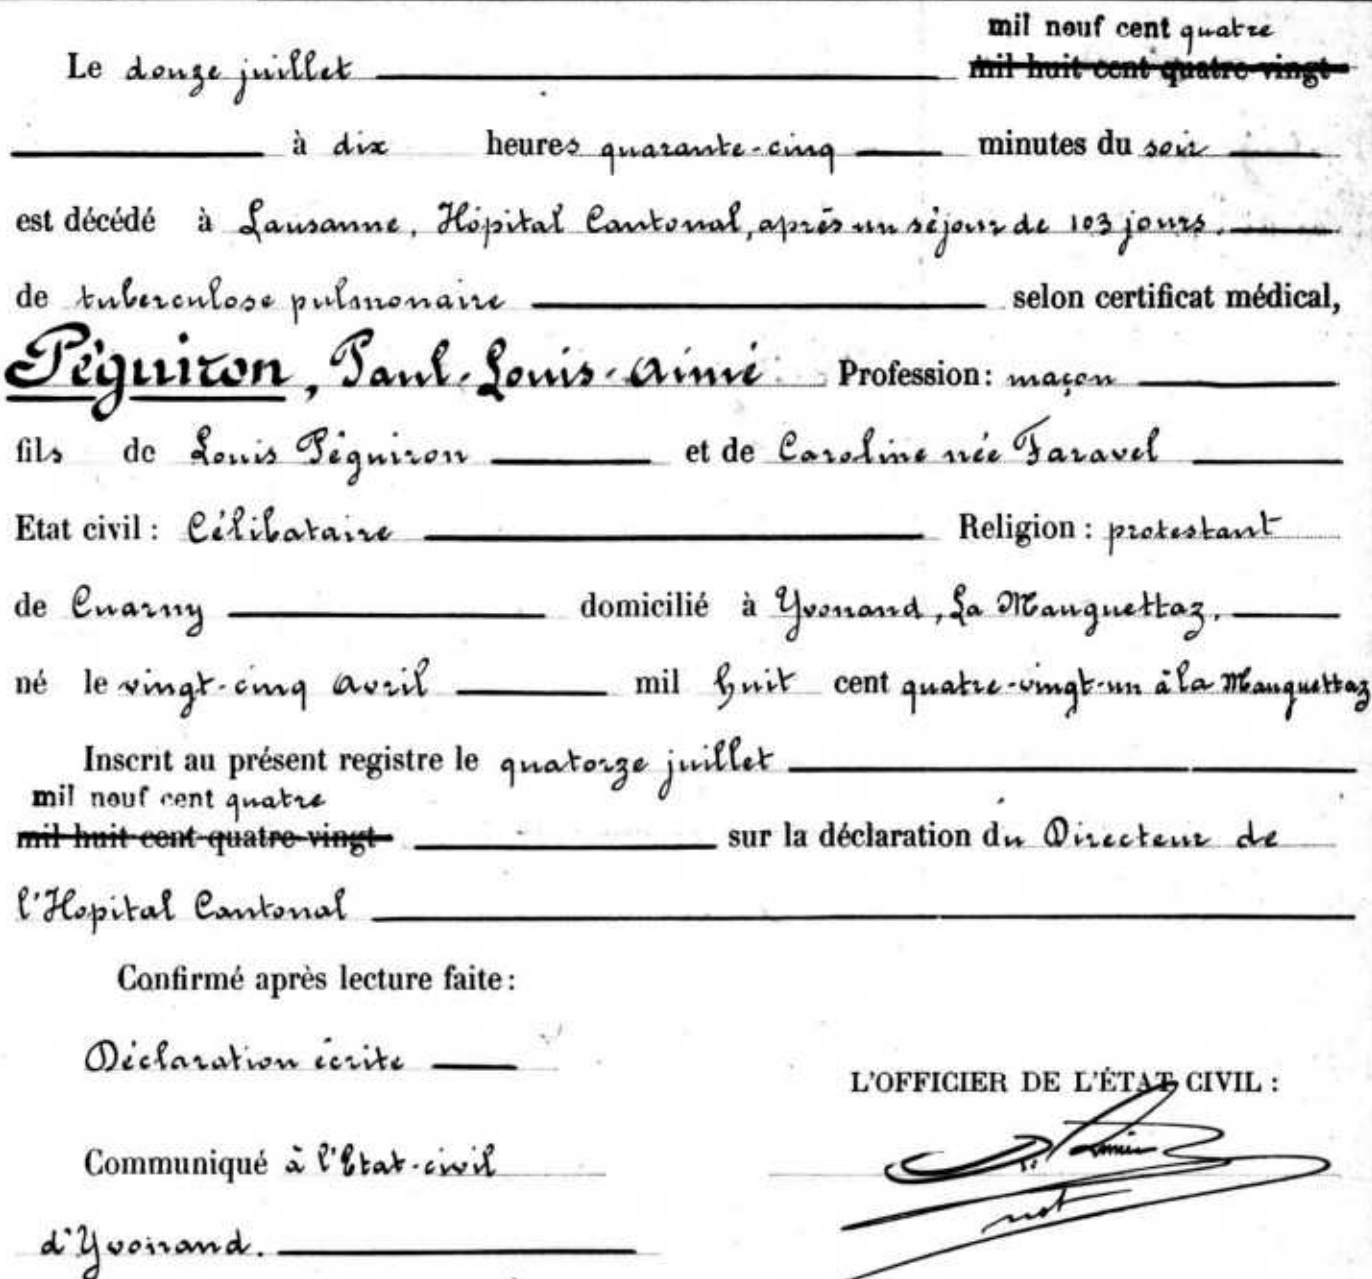 mil neuf cent quatre
Le douze juillet mil huit cent quatre-vingt
à dix heures quarante-cinq minutes du soir
est décédé à Lausanne, Hôpital Cantonal, après un séjour de 103 jours.
de tuberculose pulmonaire selon certificat médical,
Péguiron, Paul-Louis-Aimé Profession: maçon
fils de Louis Péguiron et de Caroline née Faravel
Etat civil: Célibataire Religion: protestant
de Cuarny domicilié à Yvonand, La Mauguettaz.
né le vingt-cinq Avril mil huit cent quatre-vingt-un à la Mauguettaz
Inscrit au présent registre le quatorze juillet
mil neuf cent quatre
mil huit cent quatre-vingt sur la déclaration du Directeur de
l'Hopital Cantonal
Confirmé après lecture faite:
Déclaration écrite
L'OFFICIER DE L'ÉTAT CIVIL:
Communiqué à l'Etat-civil
not
d'Yvonand.